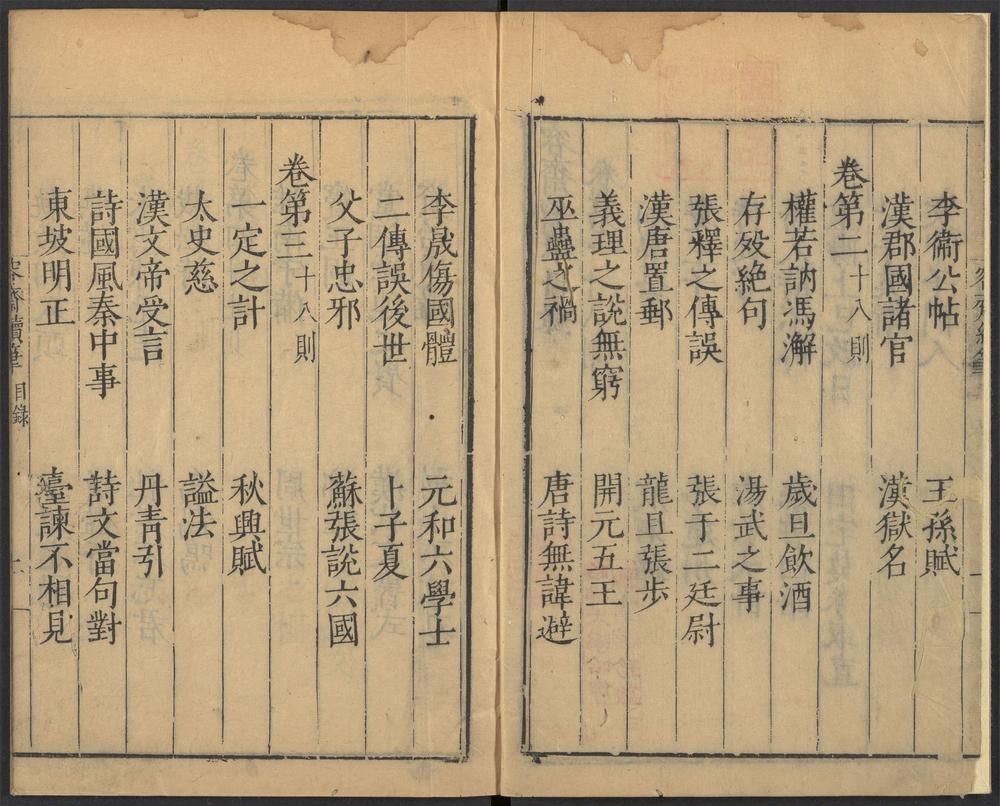 李衞公帖 王孫賦
漢郡國諸官 漢獄名
卷第二十八則
權若訥馮澥 歲旦飲酒
存殁絶句 湯武之事
張釋之傳誤 張于二廷尉
漢唐置郵 龍且張步
義理之說無窮 開元五王
巫蠱之禍 唐詩無諱避
李晟傷國體 元和六學士
二傳誤後世 卜子夏
父子忠邪 蘇張說六國
卷第三十八則
一定之計 秋興賦
太史慈 謚法
漢文帝受言 丹青引
詩國風秦中事 詩文當句對
東坡明正 臺諫不相見
容齋續筆 目錄